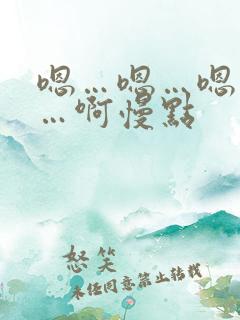 嗯…嗯…嗯
…啊慢點
怒笑
未任同意禁止转载